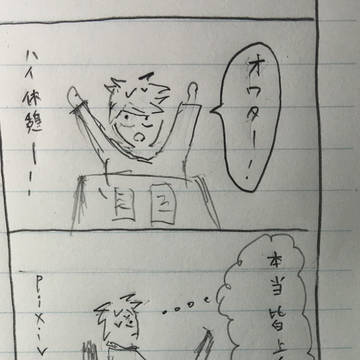 オワター!
ハイ休憩ーー!
本当皆上
pixiv